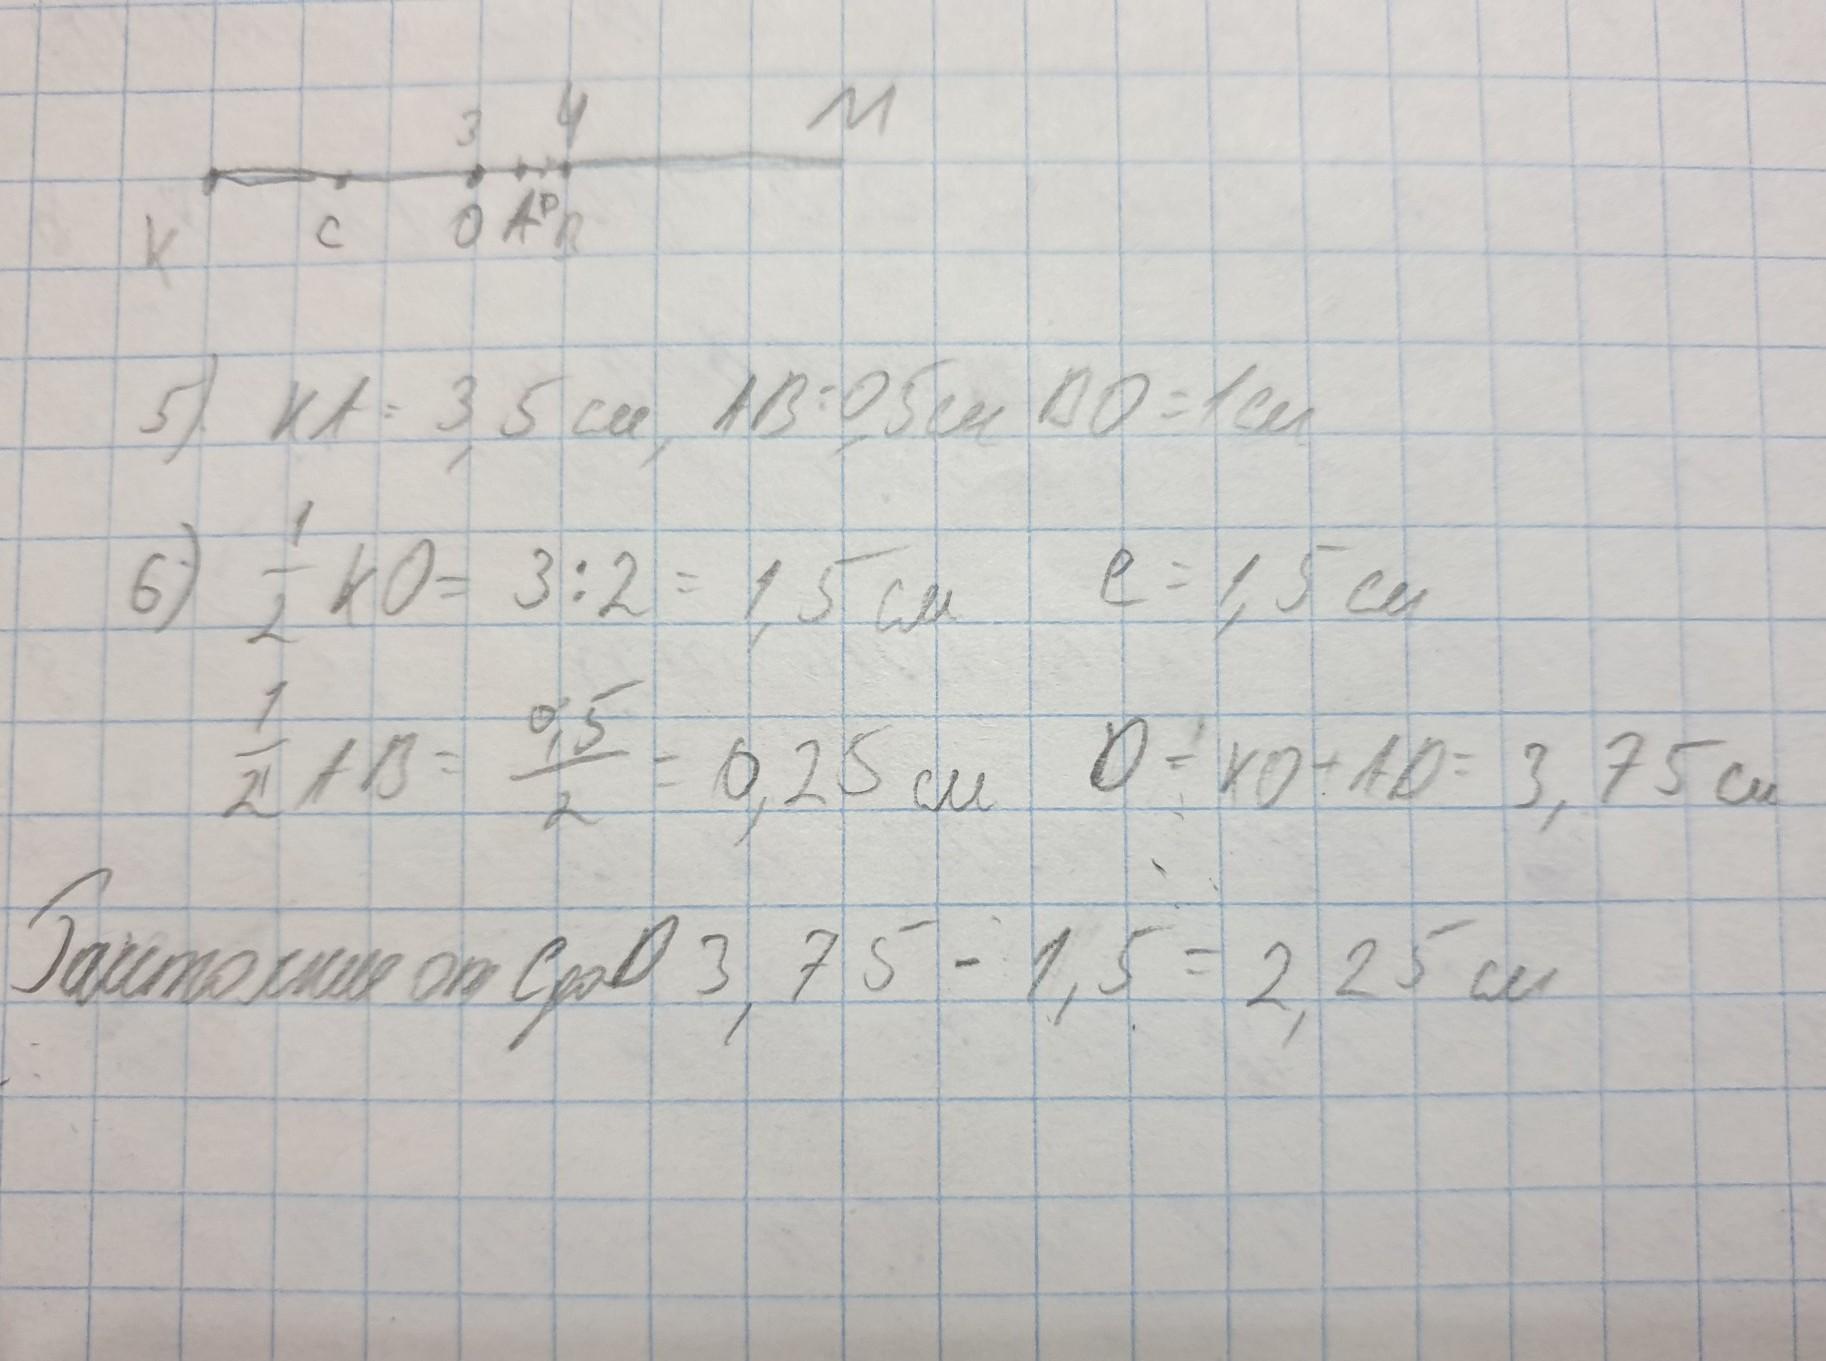 3 4 M
K C O A D B
5) KA = 3,5 см, AB = 0,5 см BO = 1 см
6) 1/2 KO = 3 : 2 = 1,5 см C = 1,5 см
1/2 AB = 0,5/2 = 0,25 см D = KO + AD = 3,75 см
от C до D 3,75 - 1,5 = 2,25 см